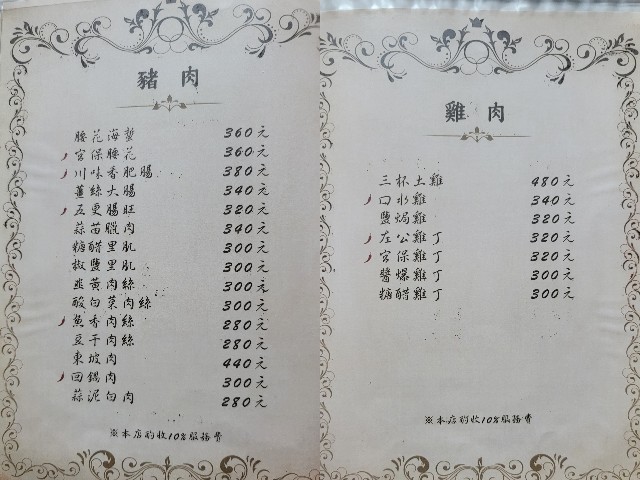 豬肉
腰花海蜇 360元
宮保腰花 360元
川味香肥腸 380元
薑絲大腸 340元
五更腸旺 320元
蒜苗臘肉 340元
糖醋里肌 300元
椒鹽里肌 300元
韭黃肉絲 300元
酸白菜肉絲 300元
魚香肉絲 280元
豆干肉絲 280元
東坡肉 440元
回鍋肉 300元
蒜泥白肉 280元
※本店酌收10%服務費
雞肉
三杯土雞 480元
口水雞 340元
鹽焗雞 320元
左公雞丁 320元
宮保雞丁 320元
醬爆雞丁 300元
糖醋雞丁 300元
※本店酌收10%服務費